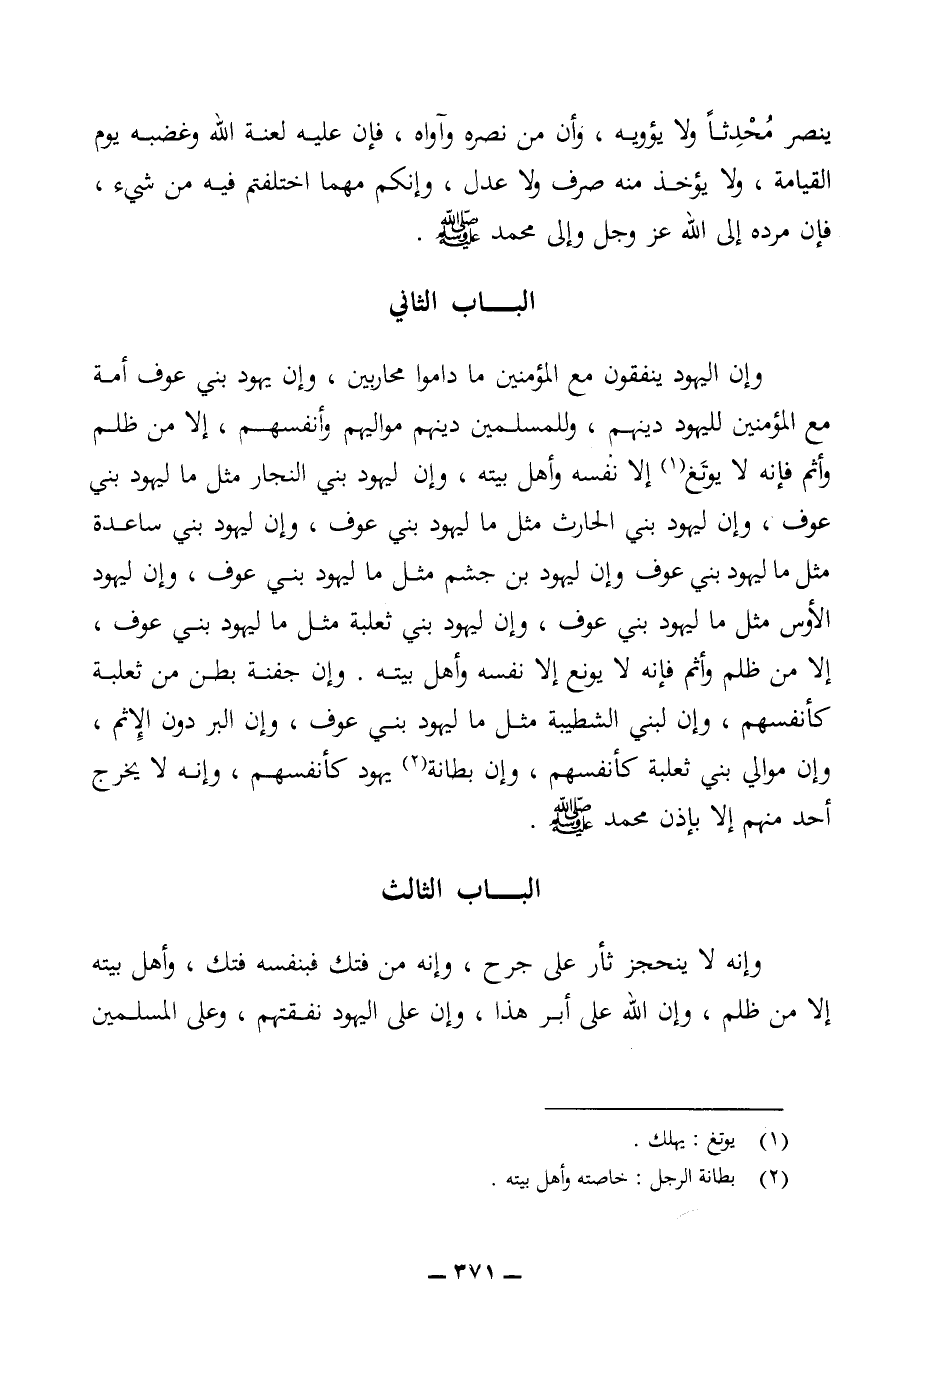 ينصر مُحْدِثاً ولا يؤويه ، وأن من نصره وآواه ، فإن عليه لعنة الله وغضبه يوم
القيامة ، ولا يؤخذ منه صرف ولا عدل ، وإنكم مهما اختلفتم فيه من شيء ،
فإن مرده إلى الله عز وجل وإلى محمد ﷺ .
الباب الثاني
وإن اليهود ينفقون مع المؤمنين ما داموا محاربين ، وإن يهود بني عوف أمة
مع المؤمنين لليهود دينهم ، وللمسلمين دينهم مواليهم وأنفسهم ، إلا من ظلم
وأثم فإنه لا يوتَغ(١) إلا نفسه وأهل بيته ، وإن ليهود بني النجار مثل ما ليهود بني
عوف ، وإن ليهود بني الحارث مثل ما ليهود بني عوف ، وإن ليهود بني ساعدة
مثل ما ليهود بني عوف وإن ليهود بن جشم مثل ما ليهود بني عوف ، وإن ليهود
الأوس مثل ما ليهود بني عوف ، وإن ليهود بني ثعلبة مثل ما ليهود بني عوف ،
إلا من ظلم وأثم فإنه لا يونع إلا نفسه وأهل بيته . وإن جفنة بطن من ثعلبة
كأنفسهم ، وإن لبني الشطيبة مثل ما ليهود بني عوف ، وإن البر دون الإثم ،
وإن موالي بني ثعلبة كأنفسهم ، وإن بطانة(٢) يهود كأنفسهم ، وإنه لا يخرج
أحد منهم إلا بإذن محمد ﷺ .
الباب الثالث
وإنه لا ينحجز ثأر على جرح ، وإنه من فتك فبنفسه فتك ، وأهل بيته
إلا من ظلم ، وإن الله على أبر هذا ، وإن على اليهود نفقتهم ، وعلى المسلمين
(١) يوتغ : يهلك .
(٢) بطانة الرجل : خاصته وأهل بيته .
ـ ٣٧١ ـ